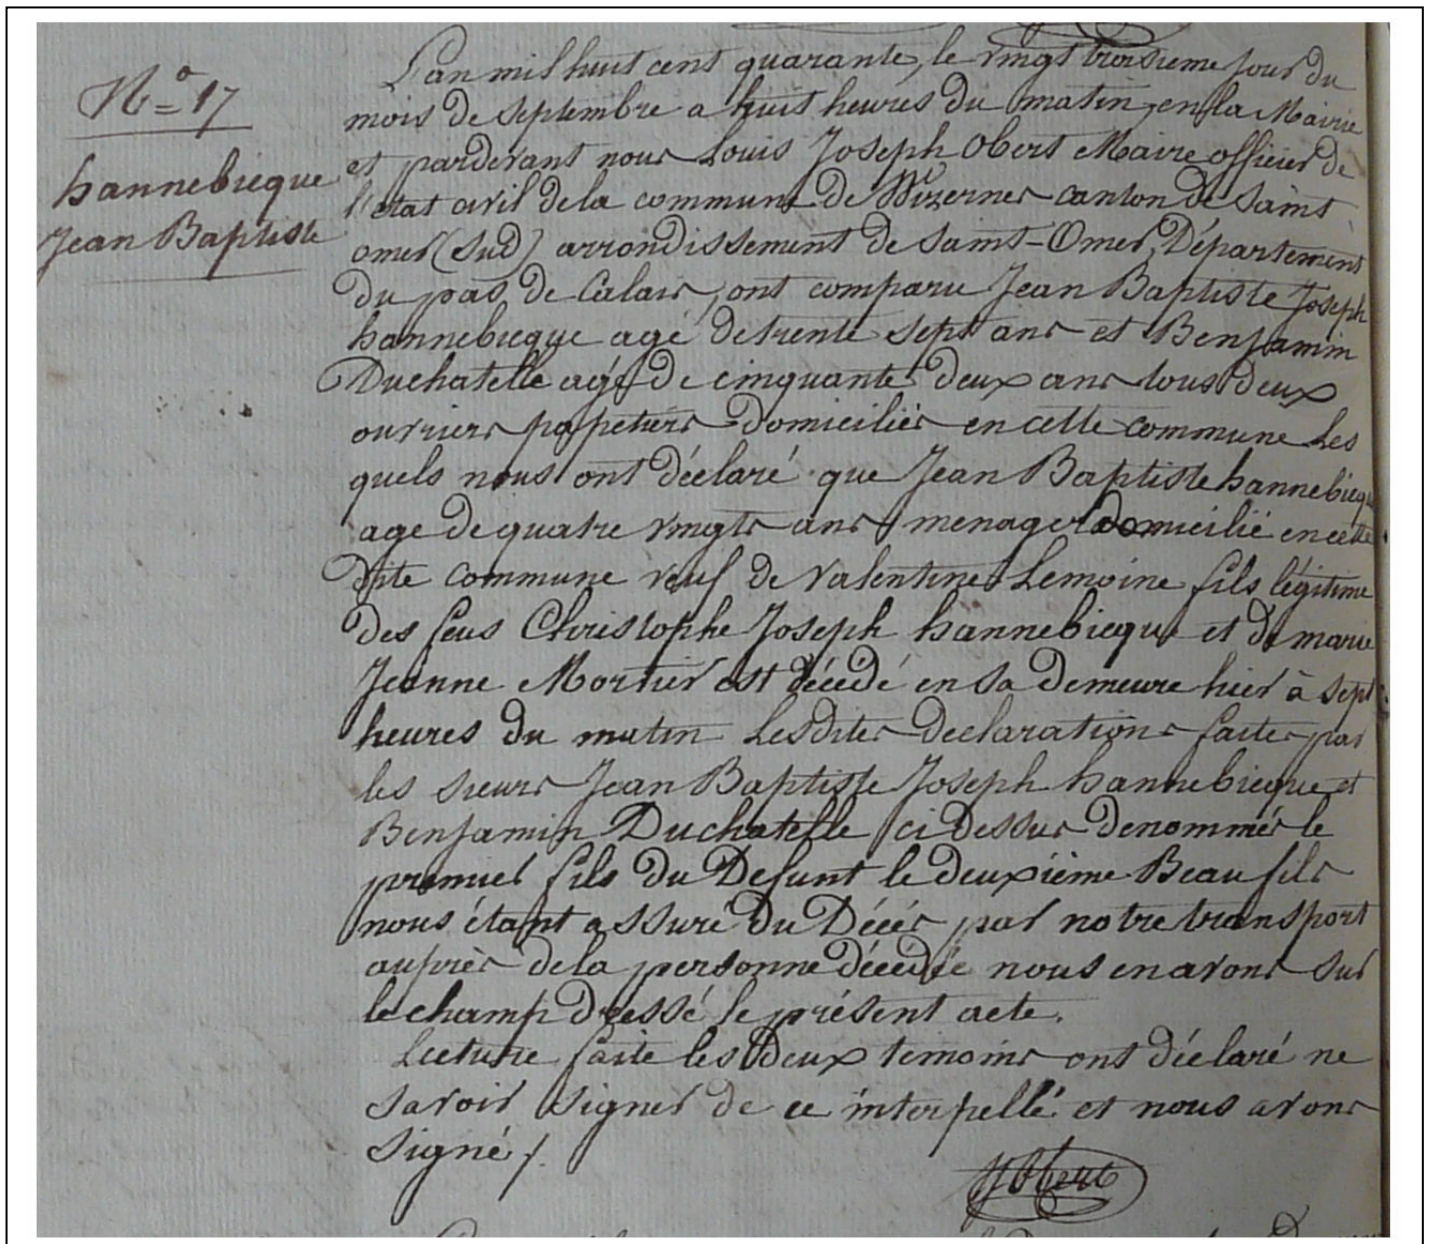 N° 17
hannebicque
Jean Baptiste
L'an mil huit cent quarante, le vingt troisieme jour du
mois de Septembre a huit heures du matin, en la Mairie
et pardevant nous Louis Joseph Obert Maire officier de
l'état civil de la commune de Wizernes canton de Saint
omer (Sud) arrondissement de Saint-Omer, Département
du pas de Calais, ont comparu Jean Baptiste Joseph
hannebicque agé de trente Sept ans et Benjamin
Duchatelle agé de cinquante deux ans tous deux
ouvriers papetiers domiciliés en cette commune Les
quels nous ont déclaré que Jean Baptiste hannebicque
age de quatre vingts ans menager domicilié en cette
dite commune veuf de Valentine Lemoine fils légitime
des feus Christophe Joseph hannebicque et de marie
Jeanne Mortier est décédé en Sa demeure hier à Sept
heures du matin Lesdites declarations faites par
les Sieurs Jean Baptiste Joseph hannebicque et
Benjamin Duchatelle ci dessus denommés le
premier fils du Defunt le deuxième Beau fils
nous étant assuré du Décés par notre transport
auprès de la personne décedée nous en avons Sur
le champ dressé le présent acte.
Lecture faite les deux temoins ont déclaré ne
Savoir Signer de ce interpellé et nous avons
Signé /.
Obert